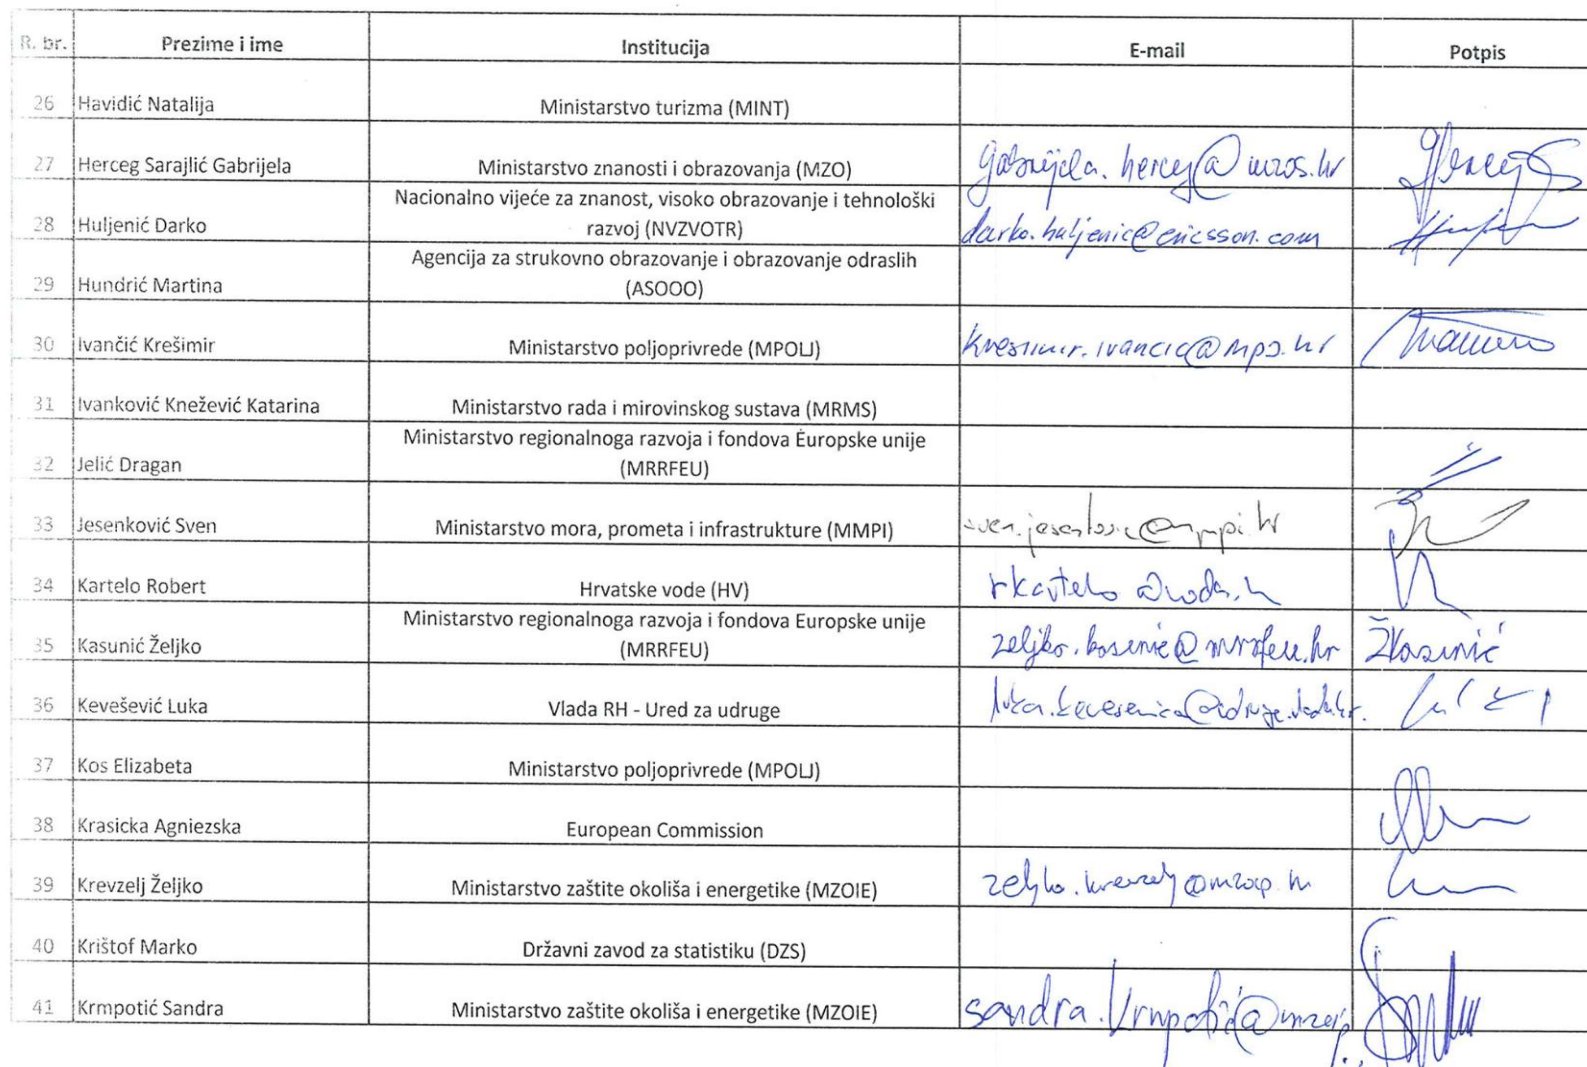 R. br. Prezime i ime Institucija E-mail Potpis
26 Havidić Natalija Ministarstvo turizma (MINT)
27 Herceg Sarajlić Gabrijela Ministarstvo znanosti i obrazovanja (MZO) gabrijela.herceg@mzos.hr
Nacionalno vijeće za znanost, visoko obrazovanje i tehnološki
28 Huljenić Darko razvoj (NVZVOTR) darko.huljenic@ericsson.com
Agencija za strukovno obrazovanje i obrazovanje odraslih
29 Hundrić Martina (ASOOO)
30 Ivančić Krešimir Ministarstvo poljoprivrede (MPOLJ) kresimir.ivancic@mps.hr
31 Ivanković Knežević Katarina Ministarstvo rada i mirovinskog sustava (MRMS)
Ministarstvo regionalnoga razvoja i fondova Europske unije
32 Jelić Dragan (MRRFEU)
33 Jesenković Sven Ministarstvo mora, prometa i infrastrukture (MMPI)
34 Kartelo Robert Hrvatske vode (HV)
Ministarstvo regionalnoga razvoja i fondova Europske unije
35 Kasunić Željko (MRRFEU) zeljko.kasunic@mrrfeu.hr ŽKasunić
36 Kevešević Luka Vlada RH - Ured za udruge
37 Kos Elizabeta Ministarstvo poljoprivrede (MPOLJ)
38 Krasicka Agniezska European Commission
39 Krevzelj Željko Ministarstvo zaštite okoliša i energetike (MZOIE) zeljko.krevzelj@mzoip.hr
40 Krištof Marko Državni zavod za statistiku (DZS)
41 Krmpotić Sandra Ministarstvo zaštite okoliša i energetike (MZOIE)